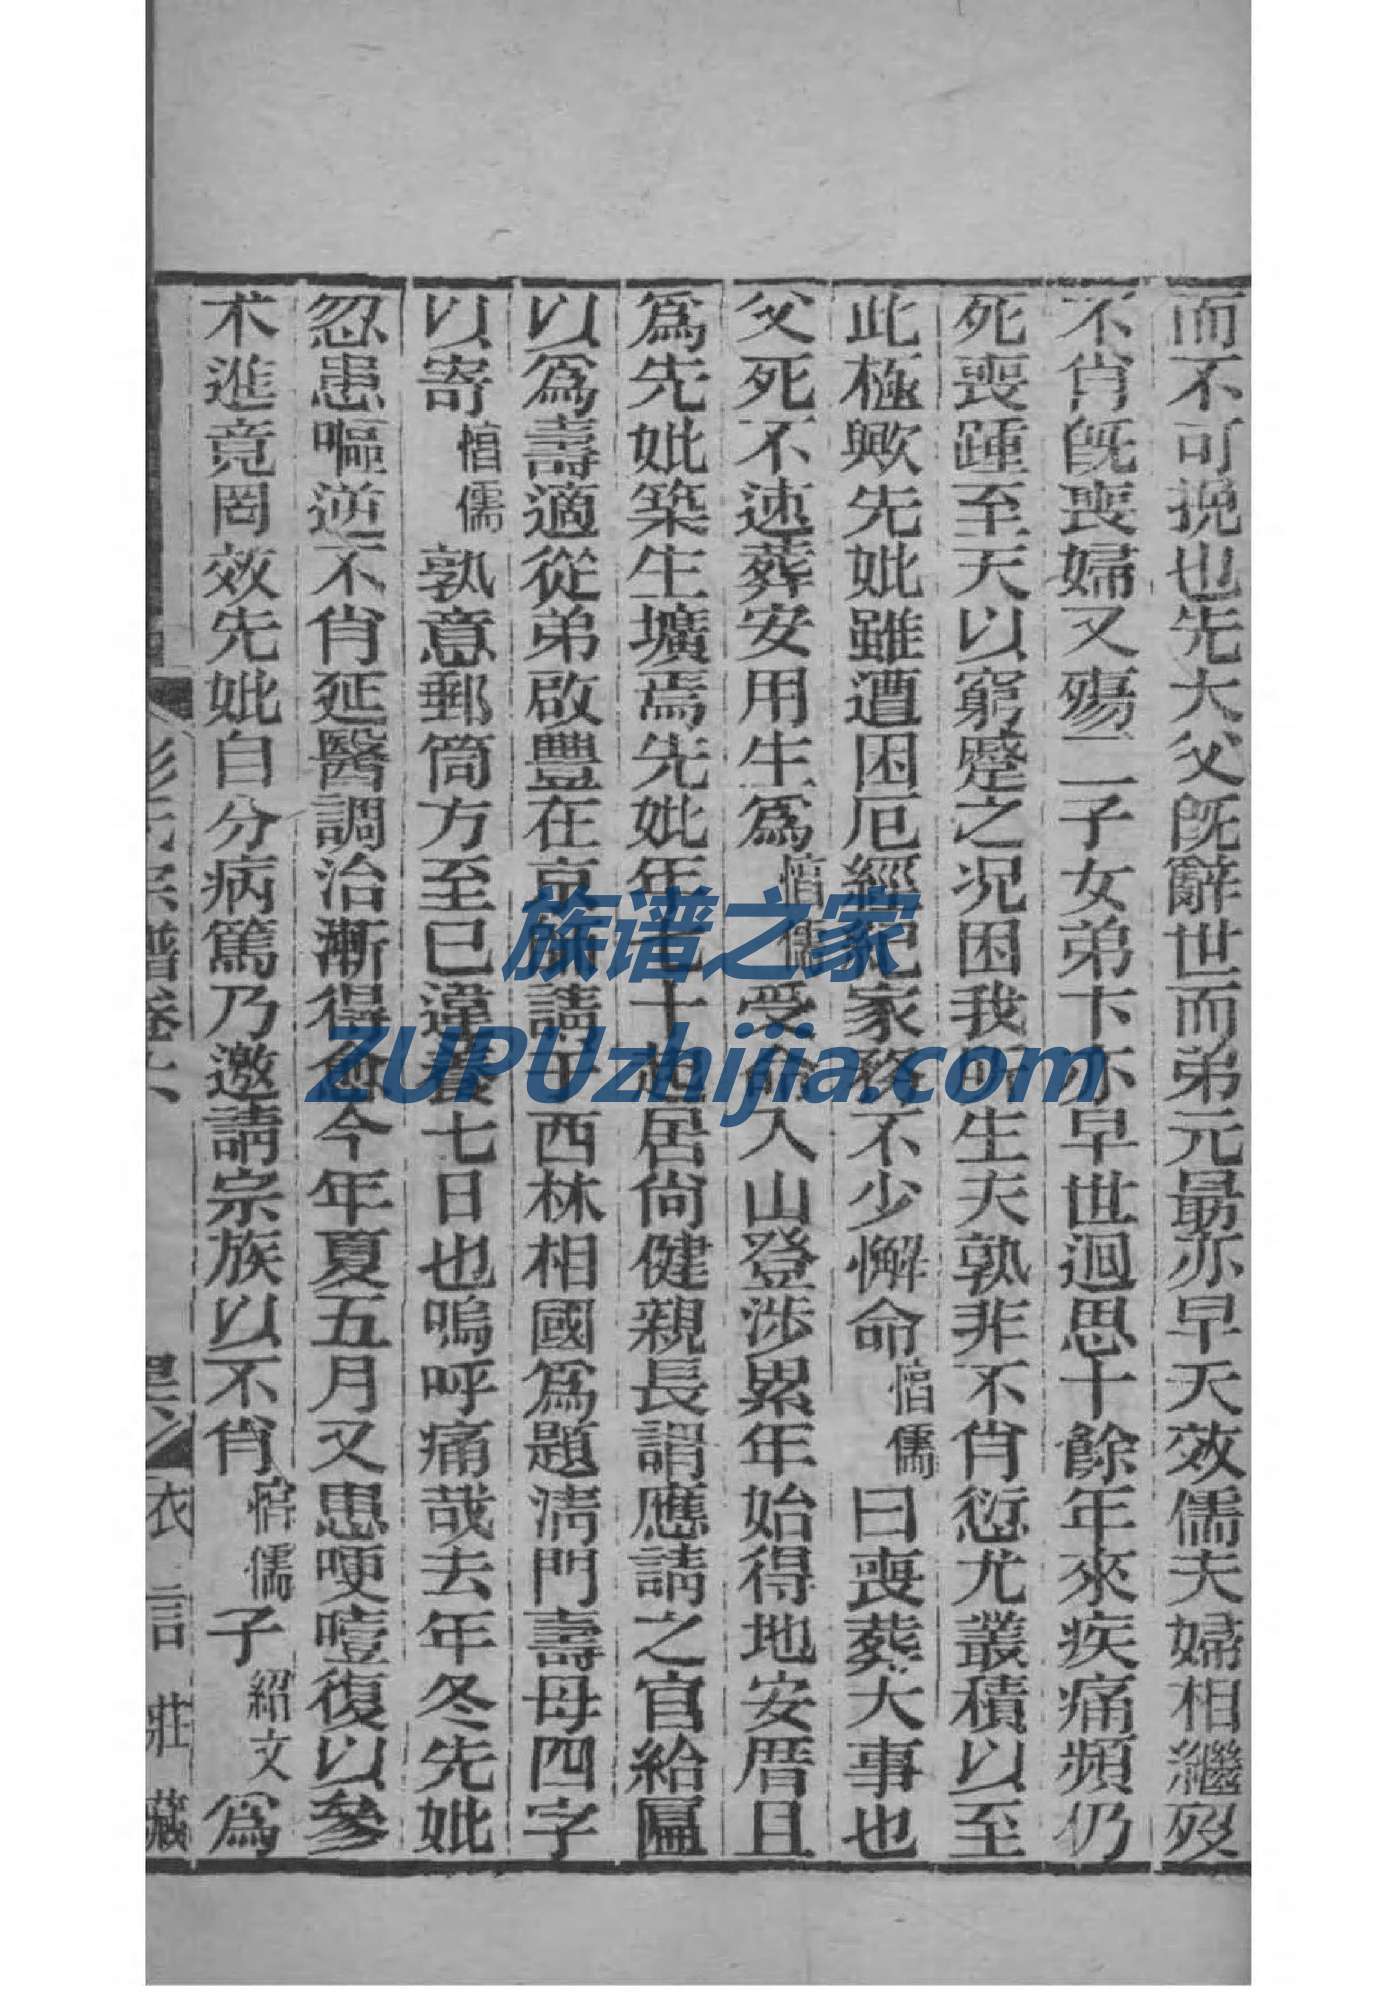 而不可挽也先大父既辭世而弟元最亦早夭效儒夫婦相繼歿
不肖旣喪婦又殤二子女弟卞亦早世迴思十餘年來疾痛頻仍
死喪踵至天以窮蹙之况困我所生夫孰非不肖愆尤叢積以至
此極歟先妣雖遭困厄經紀家務不少懈命愭儒曰喪葬大事也
父死不速葬安用生爲愭儒受命入山登涉累年始得地安厝且
爲先妣築生壙焉先妣年七十起居尙健親長謂應請之官給匾
以爲壽適從弟啟豐在京師請于西林相國爲題淸門壽母四字
以寄愭儒孰意郵筒方至已違養七日也嗚呼痛哉去年冬先妣
忽患嘔逆不肖延醫調治漸得愈今年夏五月又患哽噎復以參
朮進竟罔效先妣自分病篤乃邀請宗族以不肖愭儒子紹文爲
彭氏宗譜卷六
衣言莊藏
族谱之家
ZUPUzhijia.com